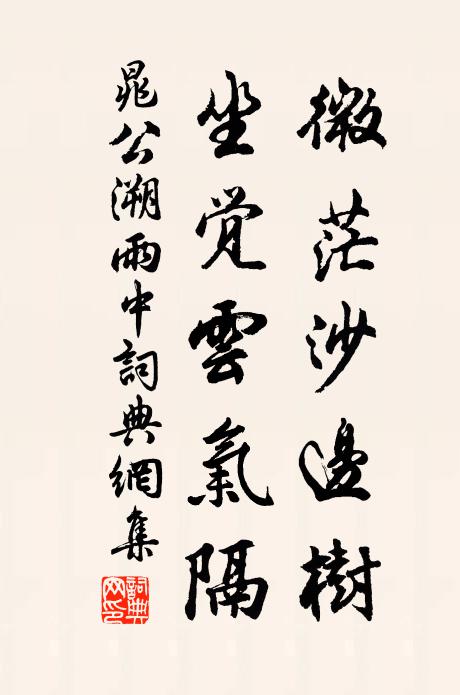 微茫沙邊樹
坐覚雲氣隔
晁公溯雨中詞典網集
詞典網印